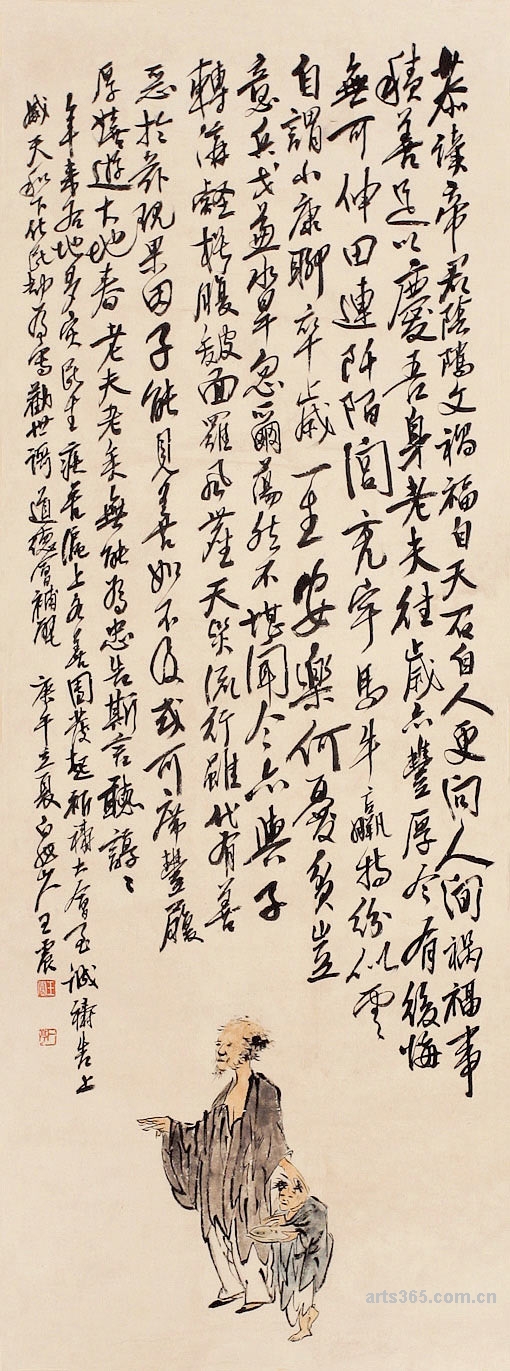 恭讀帝君陰隲文禍福自天不自人更问人间禍福事
積善足以慶吾身老夫往歲亦豐厚今有後悔
無可伸田連阡陌閎亮宇馬牛羸特紛似雲
自謂小康聊卒歲一生安樂何憂貧豈
意兵戈兼水旱忽爾蕩然不堪聞今亦與子
轉溝壑枵腹皴面羅風塵天災流行雖代有善
惡於茲現果因子能見善如不及或可席豐履
厚嬉遊大地春老夫老矣無能為忠告斯言聽諄諄
年来各地多灾民生疾苦滬上各善團發起祈禱大會至诚禱告上
感天和下化浩劫為寫勸世謌道德會補壁 庚午立夏白龍山人王震
arts365.com.cn